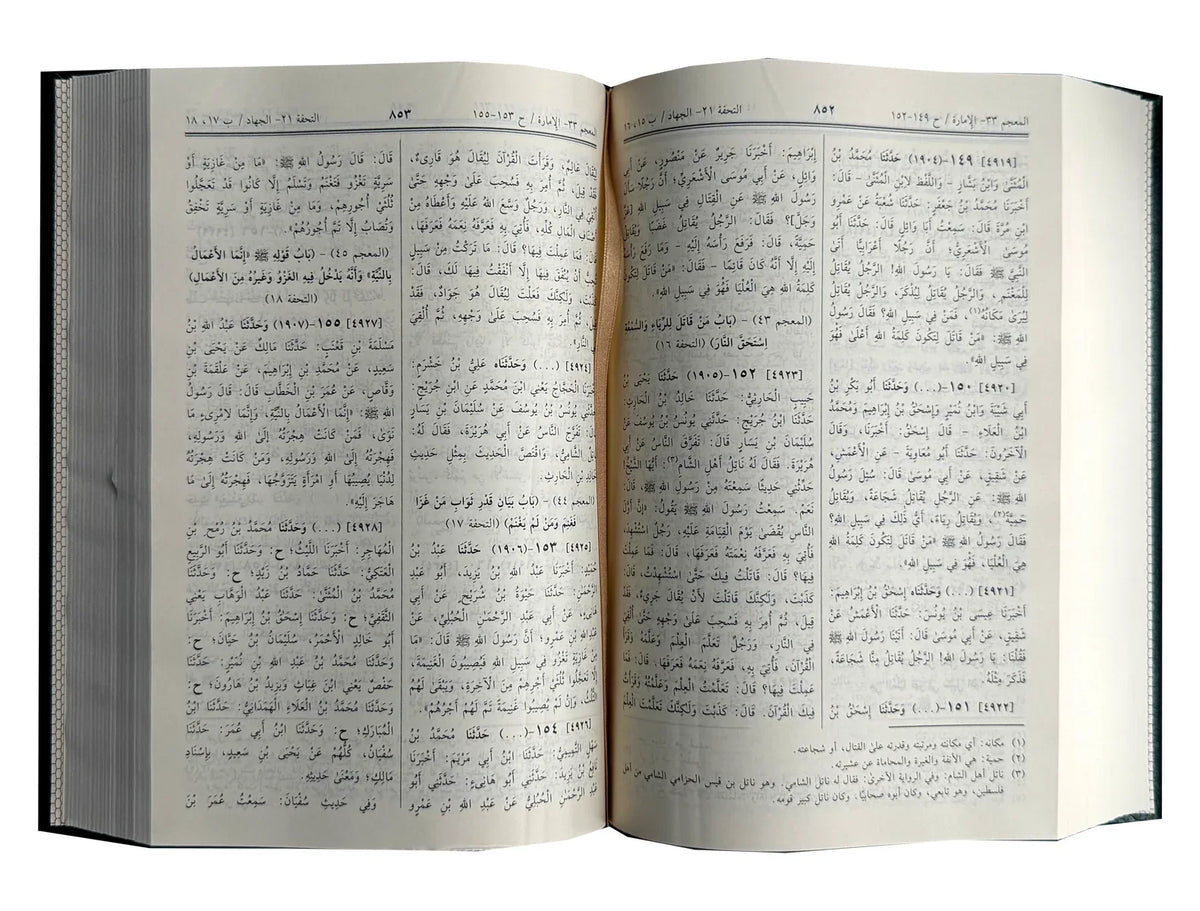 المعجم ٣٣- الإمارة / ح ١٤٩-١٥٢
٨٥٢
التحفة ٢١- الجهاد / ب ١٥، ١٦
[٤٩١٩] ١٤٩-(١٩٠٤) حَدَّثَنَا مُحَمَّدُ بْنُ
الْمُثَنَّىٰ وَابْنُ بَشَّارٍ - وَاللَّفْظُ لِابْنِ الْمُثَنَّىٰ - قَالَ:
أَخْبَرَنَا مُحَمَّدُ بْنُ جَعْفَرٍ: حَدَّثَنَا شُعْبَةُ عَنْ عَمْرِو
ابْنِ مُرَّةَ قَالَ: سَمِعْتُ أَبَا وَائِلٍ قَالَ: حَدَّثَنَا أَبُو
مُوسَىٰ الْأَشْعَرِيُّ؛ أَنَّ رَجُلًا أَعْرَابِيًّا أَتَىٰ
النَّبِيَّ ﷺ فَقَالَ: يَا رَسُولَ اللهِ! الرَّجُلُ يُقَاتِلُ
لِلْمَغْنَمِ، وَالرَّجُلُ يُقَاتِلُ لِيُذْكَرَ، وَالرَّجُلُ يُقَاتِلُ
لِيُرَىٰ مَكَانُهُ(١)، فَمَنْ فِي سَبِيلِ اللهِ؟ فَقَالَ رَسُولُ
اللهِ ﷺ: «مَنْ قَاتَلَ لِتَكُونَ كَلِمَةُ اللهِ أَعْلَىٰ فَهُوَ
فِي سَبِيلِ اللهِ».
[٤٩٢٠] ١٥٠-(...) وَحَدَّثَنَا أَبُو بَكْرِ بْنُ
أَبِي شَيْبَةَ وَابْنُ نُمَيْرٍ وَإِسْحٰقُ بْنُ إِبْرَاهِيمَ وَمُحَمَّدُ
ابْنُ الْعَلَاءِ - قَالَ إِسْحٰقُ: أَخْبَرَنَا، وَقَالَ
الْآخَرُونَ: حَدَّثَنَا أَبُو مُعَاوِيَةَ - عَنِ الْأَعْمَشِ،
عَنْ شَقِيقٍ، عَنْ أَبِي مُوسَىٰ قَالَ: سُئِلَ رَسُولُ
اللهِ ﷺ: عَنِ الرَّجُلِ يُقَاتِلُ شَجَاعَةً، وَيُقَاتِلُ
حَمِيَّةً(٢)، وَيُقَاتِلُ رِيَاءً، أَيُّ ذٰلِكَ فِي سَبِيلِ اللهِ؟
فَقَالَ رَسُولُ اللهِ ﷺ «مَنْ قَاتَلَ لِتَكُونَ كَلِمَةُ اللهِ
هِيَ الْعُلْيَا، فَهُوَ فِي سَبِيلِ اللهِ».
[٤٩٢١] (...) وَحَدَّثَنَاهُ إِسْحٰقُ بْنُ إِبْرَاهِيمَ:
أَخْبَرَنَا عِيسَى بْنُ يُونُسَ: حَدَّثَنَا الْأَعْمَشُ عَنْ
شَقِيقٍ، عَنْ أَبِي مُوسَىٰ قَالَ: أَتَيْنَا رَسُولَ اللهِ ﷺ
فَقُلْنَا: يَا رَسُولَ اللهِ! الرَّجُلُ يُقَاتِلُ مِنَّا شَجَاعَةً،
فَذَكَرَ مِثْلَهُ.
[٤٩٢٢] ١٥١-(...) وَحَدَّثَنَا إِسْحٰقُ بْنُ
إِبْرَاهِيمَ: أَخْبَرَنَا جَرِيرٌ عَنْ مَنْصُورٍ، عَنْ أَبِي
وَائِلٍ، عَنْ أَبِي مُوسَىٰ الْأَشْعَرِيِّ؛ أَنَّ رَجُلًا سَأَلَ
رَسُولَ اللهِ ﷺ عَنِ الْقِتَالِ فِي سَبِيلِ اللهِ [عَزَّ
وَجَلَّ]؟ فَقَالَ: الرَّجُلُ يُقَاتِلُ غَضَبًا وَيُقَاتِلُ
حَمِيَّةً، قَالَ: فَرَفَعَ رَأْسَهُ إِلَيْهِ - وَمَا رَفَعَ رَأْسَهُ
إِلَيْهِ إِلَّا أَنَّهُ كَانَ قَائِمًا - فَقَالَ: «مَنْ قَاتَلَ لِتَكُونَ
كَلِمَةُ اللهِ هِيَ الْعُلْيَا فَهُوَ فِي سَبِيلِ اللهِ».
(المعجم ٤٣) - (بَابُ مَنْ قَاتَلَ لِلرِّيَاءِ وَالسُّمْعَةِ
اِسْتَحَقَّ النَّارَ) (التحفة ١٦)
[٤٩٢٣] ١٥٢-(١٩٠٥) حَدَّثَنَا يَحْيَى بْنُ
حَبِيبٍ الْحَارِثِيُّ: حَدَّثَنَا خَالِدُ بْنُ الْحَارِثِ:
حَدَّثَنَا ابْنُ جُرَيْجٍ: حَدَّثَنِي يُونُسُ بْنُ يُوسُفَ عَنْ
سُلَيْمَانَ بْنِ يَسَارٍ قَالَ: تَفَرَّقَ النَّاسُ عَنْ أَبِي
هُرَيْرَةَ. فَقَالَ لَهُ نَاتِلُ أَهْلِ الشَّامِ(٣): أَيُّهَا الشَّيْخُ!
حَدِّثْنِي حَدِيثًا سَمِعْتَهُ مِنْ رَسُولِ اللهِ ﷺ، قَالَ:
نَعَمْ. سَمِعْتُ رَسُولَ اللهِ ﷺ يَقُولُ: «إِنَّ أَوَّلَ
النَّاسِ يُقْضَىٰ يَوْمَ الْقِيَامَةِ عَلَيْهِ، رَجُلٌ اسْتُشْهِدَ،
فَأُتِيَ بِهِ فَعَرَّفَهُ نِعْمَتَهُ فَعَرَفَهَا، قَالَ: فَمَا عَمِلْتَ
فِيهَا؟ قَالَ: قَاتَلْتُ فِيكَ حَتَّىٰ اسْتُشْهِدْتُ، قَالَ:
كَذَبْتَ، وَلٰكِنَّكَ قَاتَلْتَ لِأَنْ يُقَالَ جَرِيءٌ، فَقَدْ
قِيلَ، ثُمَّ أُمِرَ بِهِ فَسُحِبَ عَلَىٰ وَجْهِهِ حَتَّىٰ أُلْقِيَ
فِي النَّارِ، وَرَجُلٌ تَعَلَّمَ الْعِلْمَ وَعَلَّمَهُ وَقَرَأَ
الْقُرْآنَ، فَأُتِيَ بِهِ، فَعَرَّفَهُ نِعَمَهُ فَعَرَفَهَا، قَالَ: فَمَا
عَمِلْتَ فِيهَا؟ قَالَ: تَعَلَّمْتُ الْعِلْمَ وَعَلَّمْتُهُ وَقَرَأْتُ
فِيكَ الْقُرْآنَ. قَالَ: كَذَبْتَ وَلٰكِنَّكَ تَعَلَّمْتَ الْعِلْمَ
(١) مكانه: أي مكانته ومرتبته وقدرته على القتال، أو شجاعته.
(٢) حمية: هي الأنفة والغيرة والمحاماة عن عشيرته.
(٣) ناتل أهل الشام: وفي الرواية الأخرى: فقال له ناتل الشامي. وهو ناتل بن قيس الحزامي الشامي من أهل
فلسطين، وهو تابعي، وكان أبوه صحابيًّا. وكان ناتل كبير قومه.
المعجم ٣٣- الإمارة / ح ١٥٣-١٥٥
٨٥٣
التحفة ٢١- الجهاد / ب ١٧، ١٨
لِيُقَالَ عَالِمٌ، وَقَرَأْتَ الْقُرْآنَ لِيُقَالَ هُوَ قَارِىءٌ،
فَقَدْ قِيلَ، ثُمَّ أُمِرَ بِهِ فَسُحِبَ عَلَىٰ وَجْهِهِ حَتَّىٰ
أُلْقِيَ فِي النَّارِ، وَرَجُلٌ وَسَّعَ اللهُ عَلَيْهِ وَأَعْطَاهُ مِنْ
أَصْنَافِ الْمَالِ كُلِّهِ، فَأُتِيَ بِهِ فَعَرَّفَهُ نِعَمَهُ فَعَرَفَهَا،
قَالَ: فَمَا عَمِلْتَ فِيهَا؟ قَالَ: مَا تَرَكْتُ مِنْ سَبِيلٍ
تُحِبُّ أَنْ يُنْفَقَ فِيهَا إِلَّا أَنْفَقْتُ فِيهَا لَكَ، قَالَ:
كَذَبْتَ، وَلٰكِنَّكَ فَعَلْتَ لِيُقَالَ هُوَ جَوَادٌ، فَقَدْ
قِيلَ، ثُمَّ أُمِرَ بِهِ فَسُحِبَ عَلَىٰ وَجْهِهِ، ثُمَّ أُلْقِيَ
فِي النَّارِ».
[٤٩٢٤] (...) وَحَدَّثَنَاه عَلِيُّ بْنُ خَشْرَمٍ:
أَخْبَرَنَا الْحَجَّاجُ يَعْنِي ابْنَ مُحَمَّدٍ عَنِ ابْنِ جُرَيْجٍ:
حَدَّثَنِي يُونُسُ بْنُ يُوسُفَ عَنْ سُلَيْمَانَ بْنِ يَسَارٍ
قَالَ: تَفَرَّجَ النَّاسُ عَنْ أَبِي هُرَيْرَةَ، فَقَالَ لَهُ:
نَاتِلُ الشَّامِيُّ، وَاقْتَصَّ الْحَدِيثَ بِمِثْلِ حَدِيثِ
خَالِدِ بْنِ الْحَارِثِ.
(المعجم ٤٤) - (بَابُ بَيَانِ قَدْرِ ثَوَابِ مَنْ غَزَا
فَغَنِمَ وَمَنْ لَمْ يَغْنَمْ) (التحفة ١٧)
[٤٩٢٥] ١٥٣-(١٩٠٦) حَدَّثَنَا عَبْدُ بْنُ
حُمَيْدٍ: أَخْبَرَنَا عَبْدُ اللهِ بْنُ يَزِيدَ، أَبُو عَبْدِ
الرَّحْمٰنِ: حَدَّثَنَا حَيْوَةُ بْنُ شُرَيْحٍ عَنْ أَبِي
هَانِىءٍ، عَنْ أَبِي عَبْدِ الرَّحْمٰنِ الْحُبُلِيِّ، عَنْ
عَبْدِ اللهِ بْنِ عَمْرٍو؛ أَنَّ رَسُولَ اللهِ ﷺ قَالَ: «مَا
مِنْ غَازِيَةٍ تَغْزُو فِي سَبِيلِ اللهِ فَيُصِيبُونَ الْغَنِيمَةَ،
إِلَّا تَعَجَّلُوا ثُلُثَيْ أَجْرِهِمْ مِنَ الْآخِرَةِ، وَيَبْقَىٰ لَهُمُ
الثُّلُثُ، وَإِنْ لَمْ يُصِيبُوا غَنِيمَةً تَمَّ لَهُمْ أَجْرُهُمْ».
[٤٩٢٦] ١٥٤-(...) حَدَّثَنَا مُحَمَّدُ بْنُ
سَهْلٍ التَّمِيمِيُّ: حَدَّثَنَا ابْنُ أَبِي مَرْيَمَ: أَخْبَرَنَا
نَافِعُ بْنُ يَزِيدَ: حَدَّثَنِي أَبُو هَانِىءٍ: حَدَّثَنِي أَبُو
عَبْدِ الرَّحْمٰنِ الْحُبُلِيُّ عَنْ عَبْدِ اللهِ بْنِ عَمْرٍو
قَالَ: قَالَ رَسُولُ اللهِ ﷺ: «مَا مِنْ غَازِيَةٍ أَوْ
سَرِيَّةٍ تَغْزُو فَتَغْنَمُ وَتَسْلَمُ إِلَّا كَانُوا قَدْ تَعَجَّلُوا
ثُلُثَيْ أُجُورِهِمْ، وَمَا مِنْ غَازِيَةٍ أَوْ سَرِيَّةٍ تُخْفِقُ
وَتُصَابُ إِلَّا تَمَّ أُجُورُهُمْ».
(المعجم ٤٥) - (بَابُ قَوْلِهِ ﷺ «إِنَّمَا الْأَعْمَالُ
بِالنِّيَّةِ» وَأَنَّهُ يَدْخُلُ فِيهِ الْغَزْوُ وَغَيْرُهُ مِنَ الْأَعْمَالِ)
(التحفة ١٨)
[٤٩٢٧] ١٥٥-(١٩٠٧) وَحَدَّثَنَا عَبْدُ اللهِ بْنُ
مَسْلَمَةَ بْنِ قَعْنَبٍ: حَدَّثَنَا مَالِكٌ عَنْ يَحْيَى بْنِ
سَعِيدٍ، عَنْ مُحَمَّدِ بْنِ إِبْرَاهِيمَ، عَنْ عَلْقَمَةَ بْنِ
وَقَّاصٍ، عَنْ عُمَرَ بْنِ الْخَطَّابِ قَالَ: قَالَ رَسُولُ
اللهِ ﷺ: «إِنَّمَا الْأَعْمَالُ بِالنِّيَّةِ، وَإِنَّمَا لِامْرِىءٍ مَا
نَوَىٰ، فَمَنْ كَانَتْ هِجْرَتُهُ إِلَىٰ اللهِ وَرَسُولِهِ،
فَهِجْرَتُهُ إِلَىٰ اللهِ وَرَسُولِهِ، وَمَنْ كَانَتْ هِجْرَتُهُ
لِدُنْيَا يُصِيبُهَا أَوِ امْرَأَةٍ يَتَزَوَّجُهَا، فَهِجْرَتُهُ إِلَىٰ مَا
هَاجَرَ إِلَيْهِ».
[٤٩٢٨] (...) وَحَدَّثَنَا مُحَمَّدُ بْنُ رُمْحِ بْنِ
الْمُهَاجِرِ: أَخْبَرَنَا اللَّيْثُ؛ ح: وَحَدَّثَنَا أَبُو الرَّبِيعِ
الْعَتَكِيُّ: حَدَّثَنَا حَمَّادُ بْنُ زَيْدٍ؛ ح: وَحَدَّثَنَا
مُحَمَّدُ بْنُ الْمُثَنَّىٰ: حَدَّثَنَا عَبْدُ الْوَهَّابِ يَعْنِي
الثَّقَفِيَّ؛ ح: وَحَدَّثَنَا إِسْحٰقُ بْنُ إِبْرَاهِيمَ: أَخْبَرَنَا
أَبُو خَالِدٍ الْأَحْمَرُ، سُلَيْمَانُ بْنُ حَيَّانَ؛ ح:
وَحَدَّثَنَا مُحَمَّدُ بْنُ عَبْدِ اللهِ بْنِ نُمَيْرٍ: حَدَّثَنَا
حَفْصٌ يَعْنِي ابْنَ غِيَاثٍ وَيَزِيدُ بْنُ هَارُونَ؛ ح:
وَحَدَّثَنَا مُحَمَّدُ بْنُ الْعَلَاءِ الْهَمْدَانِيُّ: حَدَّثَنَا ابْنُ
الْمُبَارَكِ؛ ح: وَحَدَّثَنَا ابْنُ أَبِي عُمَرَ: حَدَّثَنَا
سُفْيَانُ، كُلُّهُمْ عَنْ يَحْيَى بْنِ سَعِيدٍ، بِإِسْنَادِ
مَالِكٍ؛ وَمَعْنَىٰ حَدِيثِهِ.
وَفِي حَدِيثِ سُفْيَانَ: سَمِعْتُ عُمَرَ بْنَ